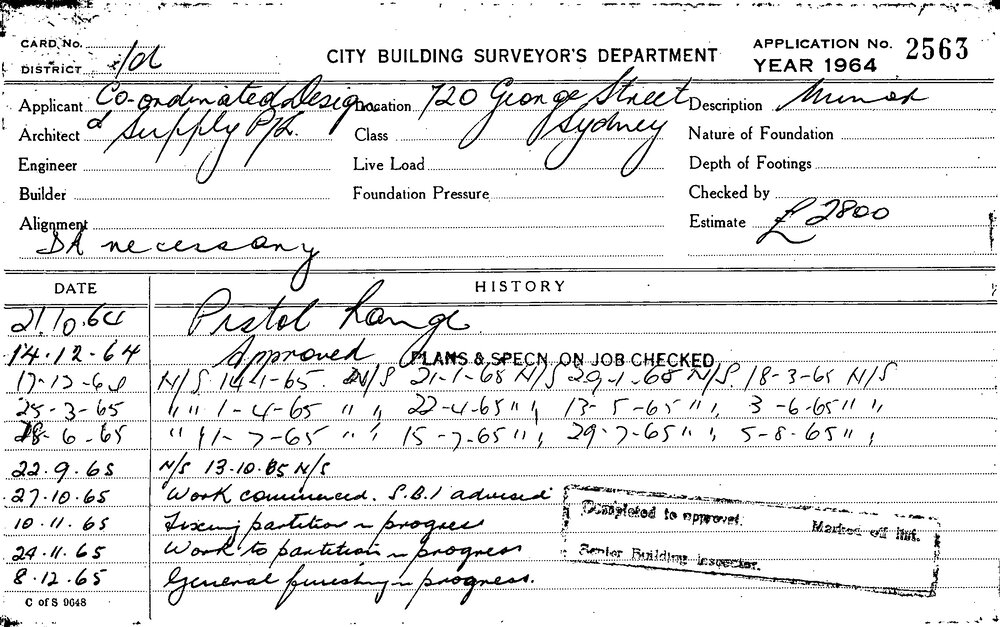 CARD No.
DISTRICT
CITY BUILDING SURVEYOR'S DEPARTMENT
APPLICATION No. 2563
YEAR 1964
Applicant Co-ordinated Design Location 720 George Street Description Minor
Architect & Supply P/L. Class Sydney Nature of Foundation
Engineer Live Load Depth of Footings
Builder Foundation Pressure Checked by
Alignment Estimate £2800
DA necessary
DATE HISTORY
21.10.64 Pistol Range
14.12.64 Approved PLANS & SPECN ON JOB CHECKED
17-12-64 N/S. 14-1-65. N/S 21-1-65 N/S 29-1-65 N/S. 18-3-65 N/S
25-3-65 " " 1-4-65 " " 22-4-65 " " 13-5-65 " " 3-6-65 " "
18-6-65 " " 1-7-65 " " 15-7-65 " " 29-7-65 " " 5-8-65 " "
22.9.65 N/S 13.10.65 N/S
27.10.65 Work commenced. S.B.I advised
10.11.65 Fixing partition in progress
24.11.65 Work to partition in progress
8.12.65 General finishing in progress.
Completed to approval. Marked off list.
Senior Building Inspector.
C of S 9648